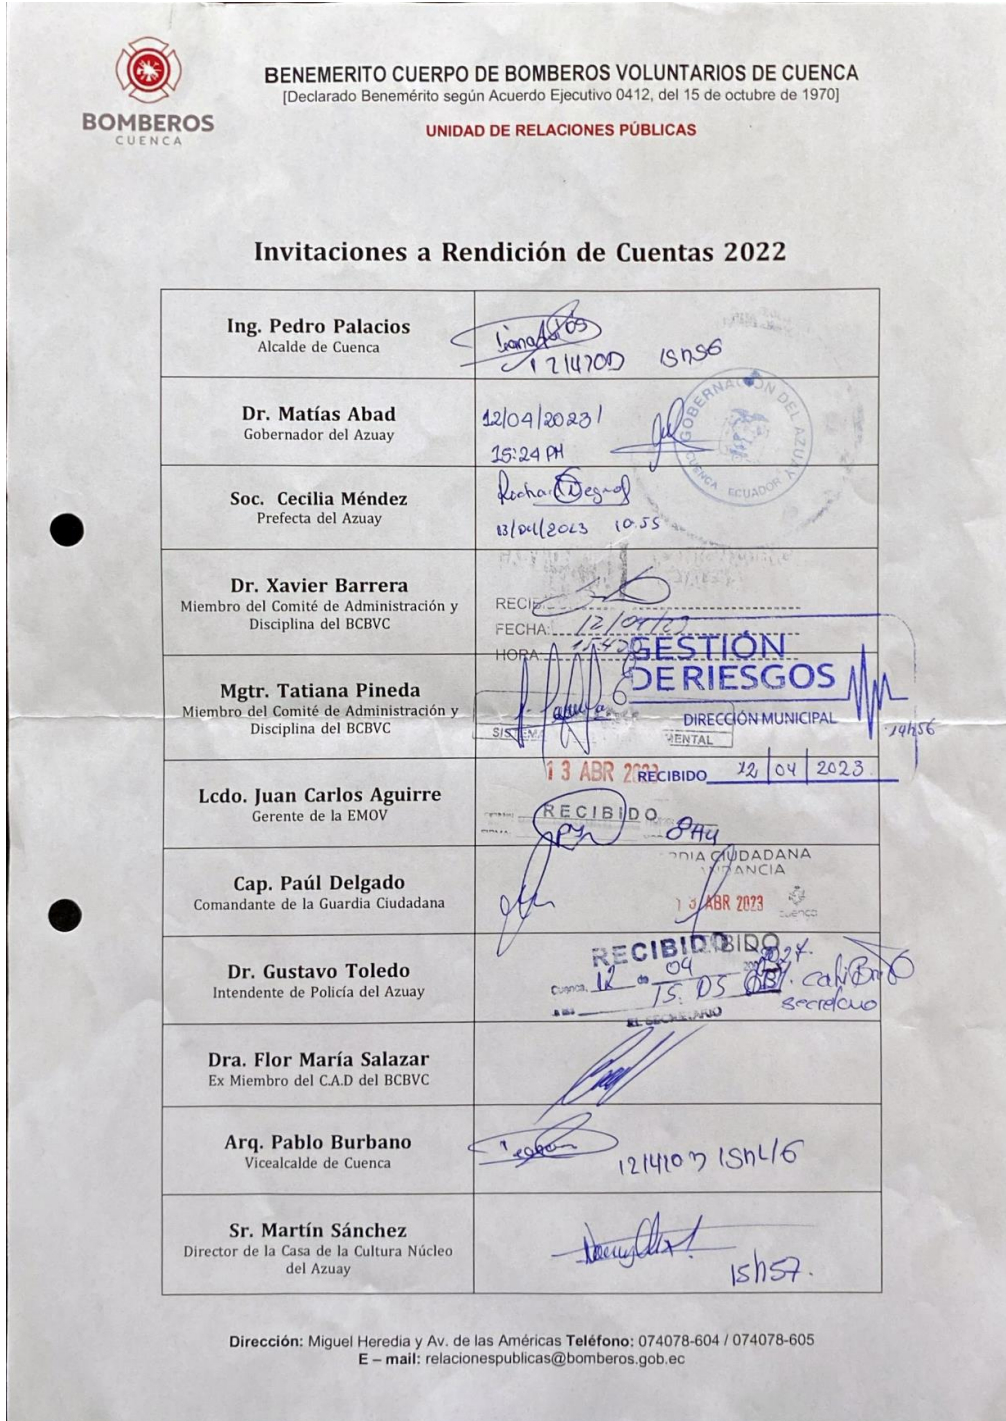 BOMBEROS
CUENCA
BENEMERITO CUERPO DE BOMBEROS VOLUNTARIOS DE CUENCA
[Declarado Benemérito según Acuerdo Ejecutivo 0412, del 15 de octubre de 1970]
UNIDAD DE RELACIONES PÚBLICAS
Invitaciones a Rendición de Cuentas 2022
Ing. Pedro Palacios
Alcalde de Cuenca
15h56
Dr. Matías Abad
Gobernador del Azuay
12/04/2023
15:24 PM
GOBERNACIÓN DEL AZUAY
CUENCA - ECUADOR
Soc. Cecilia Méndez
Prefecta del Azuay
13/04/2023 10:55
Dr. Xavier Barrera
Miembro del Comité de Administración y
Disciplina del BCBVC
FECHA: 12/04/23
HORA:
GESTIÓN
DE RIESGOS
DIRECCIÓN MUNICIPAL
14h56
RECIBIDO 12/04/2023
Mgtr. Tatiana Pineda
Miembro del Comité de Administración y
Disciplina del BCBVC
13 ABR
Lcdo. Juan Carlos Aguirre
Gerente de la EMOV
RECIBIDO
Cap. Paúl Delgado
Comandante de la Guardia Ciudadana
CIUDADANA
ABR 2023
cuenca
Dr. Gustavo Toledo
Intendente de Policía del Azuay
RECIBIDO
Cuenca, 12 de 04
15:05
EL SECRETARIO
Secretario
Dra. Flor María Salazar
Ex Miembro del C.A.D del BCBVC
Arq. Pablo Burbano
Vicealcalde de Cuenca
Sr. Martín Sánchez
Director de la Casa de la Cultura Núcleo
del Azuay
15h57.
Dirección: Miguel Heredia y Av. de las Américas Teléfono: 074078-604 / 074078-605
E – mail: relacionespublicas@bomberos.gob.ec